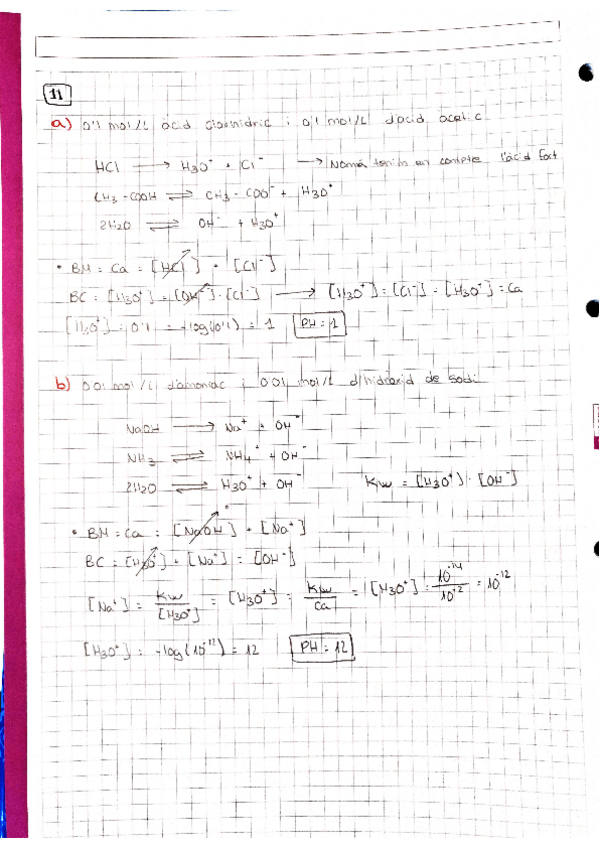 11
a) 0'1 mol/L àcid clorhídric i 0,1 mol/L d'àcid acètic.
HCl → H3O⁺ + Cl⁻ → Només tenim en compte l'àcid fort
CH3-COOH ⇌ CH3-COO⁻ + H3O⁺
2H2O ⇌ OH⁻ + H3O⁺
• BM = Ca = [HCl] + [Cl⁻]
BC = [H3O⁺] = [OH⁻] + [Cl⁻] → [H3O⁺] = [Cl⁻] = [H3O⁺] = Ca
[H3O⁺] = 0'1 = -log(0'1) = 1 PH = 1
b) 0'01 mol/L d'amoníac i 0'01 mol/L d'hidròxid de sodi
NaOH → Na⁺ + OH⁻
NH3 ⇌ NH4⁺ + OH⁻
2H2O ⇌ H3O⁺ + OH⁻ Kw = [H3O⁺] · [OH⁻]
• BM = Ca = [NaOH] + [Na⁺]
BC = [H3O⁺] + [Na⁺] = [OH⁻]
[Na⁺] = Kw/[H3O⁺] = [H3O⁺] = Kw/Ca = [H3O⁺] = 10⁻¹⁴/10⁻² = 10⁻¹²
[H3O⁺] = -log(10⁻¹²) = 12 PH = 12